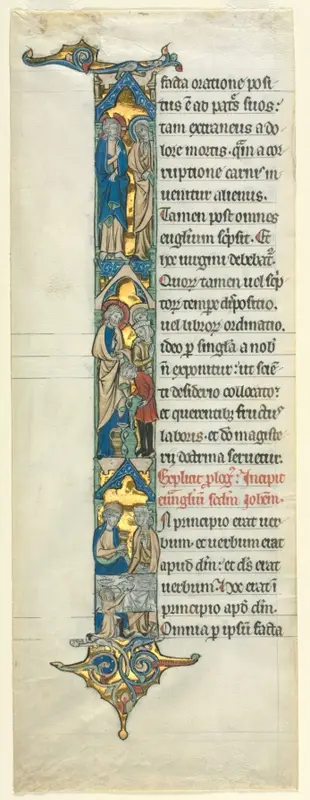 facta oratione posi
tus ē ad patꝭ suos:
tam extraneus a do
lore mortis. qm̄ a cor
ruptione carnis in
uenitur alienus.
Tamen post omnes
euglium scpsit. Et
h̄ uirgini debebat᷑.
Quoꝝ tamen uel scp
toꝝ tempꝝ dispositio.
uel libroꝝ ordinatio.
ideo ꝑ singla a nob̄
n̄ exponitur: ut sciē
ti desiderio collocato:
et querentibꝫ fructus
laboris. et dō magiste
rii doctrina seruetur.
Explicit plogꝰ. Incipit
euuglium scdm Johem.
IN principio erat uer
bum. et uerbum erat
apud dm: et ds erat
uerbum. Hoc erat ī
principio apd dm.
Omnia ꝑ ipsū facta